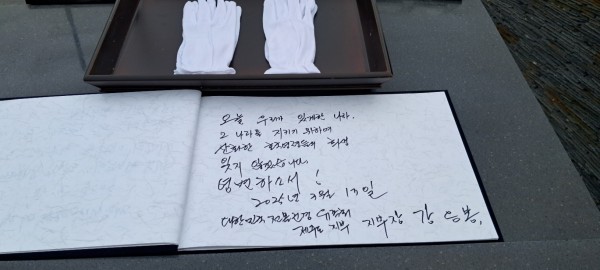 오늘 우리가 있게한 나라.
그 나라를 지키기 위하여
산화한 호국영령들의 희생
잊지 않겠습니다.
영면하소서!
2025년 3월 13일
대한민국 전몰군경 유족회
제주도 지부 지부장 강 응봉.